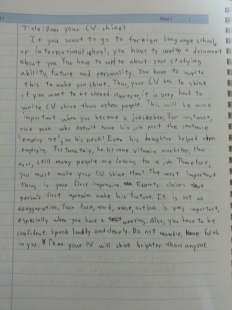 Title: Does your CV shine?
If you want to go to foreign language school,
or international school, you have to write a document
about you. You have to write about your studying
ability, future and personality. You have to
this to make you shine. Thus, your CV has to shine
if you want to be shined. However, it is very hard to
write CV shine than other people. This will be more
important when you become a jobseeker. For instance,
one man who doesn't have his job put the sentence
"employ me", on his neck! Even his daughter helped when
employing. Fortunately, he became vitamin
ever, still many people are looking for a job. Therefore,
you must make your CV shine. How? The most important
thing is your first impression. claims that
person's first impression make his future. It is not an
exaggeration. Your face, word, voice, is very important,
especially when you have a meeting. Also, you have to be
confident. Speak loudly and clearly. Do not mumble, have faith
in you. Then your CV will shine brighter than anyone.